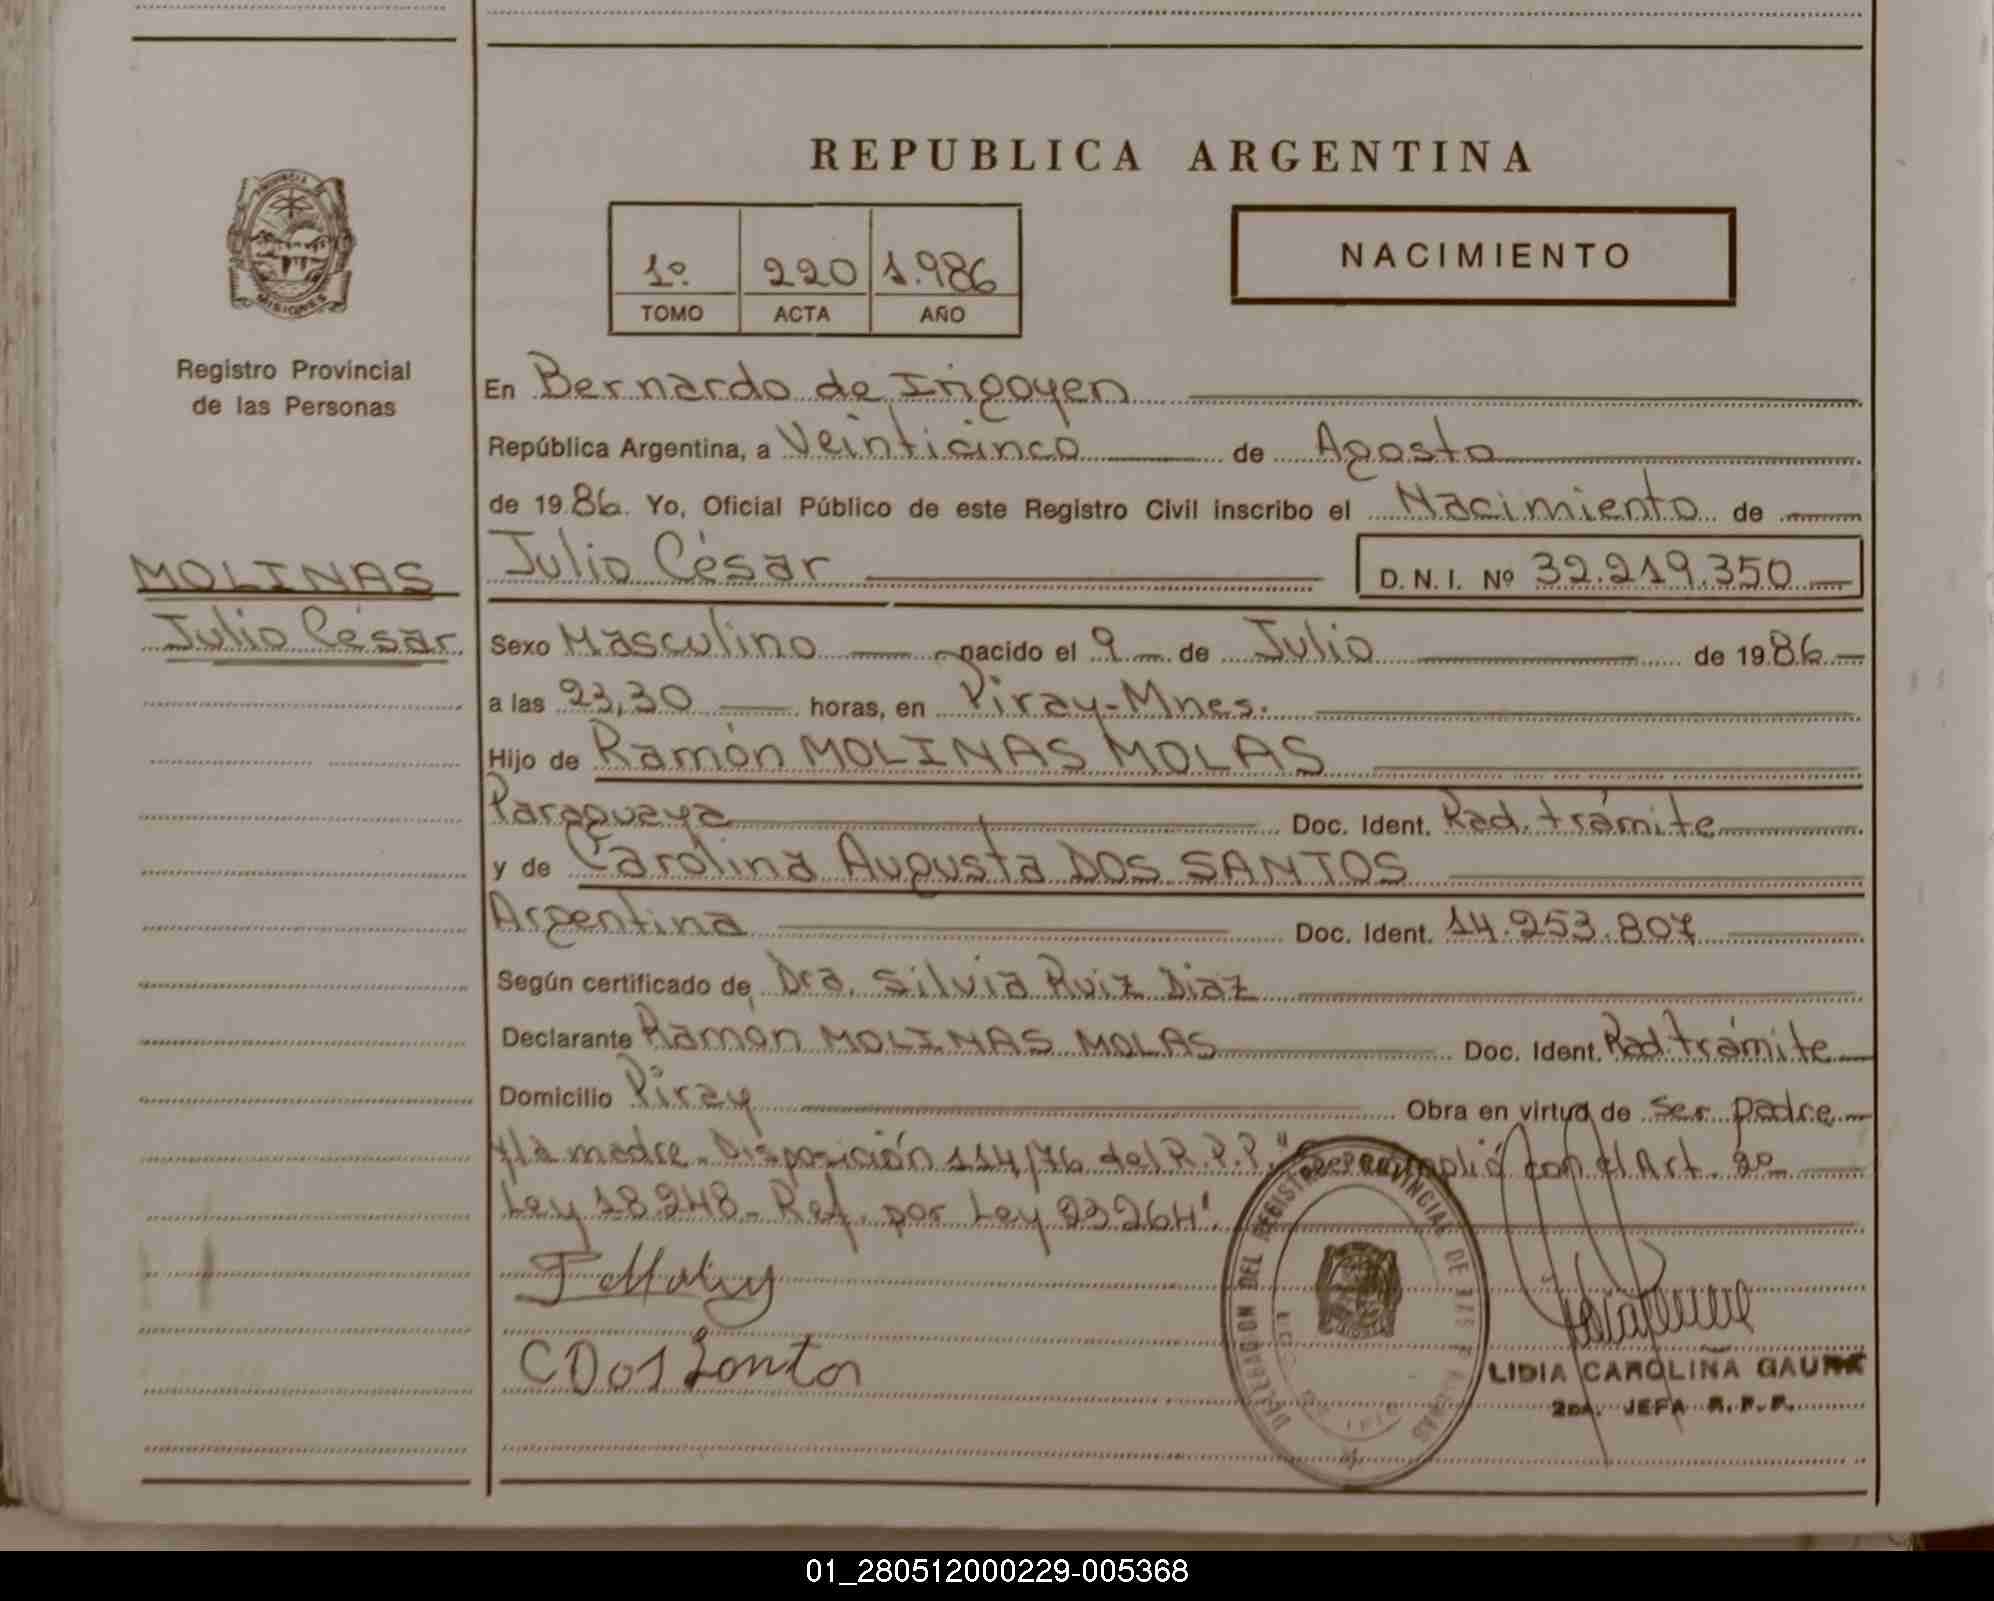 REPUBLICA ARGENTINA
PROVINCIA
MISIONES
Registro Provincial
de las Personas
MOLINAS
Julio César
1º 220 1.986
TOMO ACTA AÑO
NACIMIENTO
En Bernardo de Irigoyen
República Argentina, a Veinticinco de Agosto
de 1986. Yo, Oficial Público de este Registro Civil inscribo el Nacimiento de
Julio César D. N. I. Nº 32.219.350
Sexo Masculino nacido el 9 de Julio de 1986
a las 23,30 horas, en Piray-Mnes.
Hijo de Ramón MOLINAS MOLAS
Paraguaya Doc. Ident. Rad. trámite
y de Carolina Augusta DOS SANTOS
Argentina Doc. Ident. 14.253.807
Según certificado de Dra. Silvia Ruiz Diaz
Declarante Ramón MOLINAS MOLAS Doc. Ident. Rad. trámite
Domicilio Piray Obra en virtud de ser padre
y/la madre. Disposición 114/76 del R.P.P. " cumplió con el Art. 2º
Ley 18.248- Ref. por Ley 23264".
C Dos Santos
DELEGACION DEL REGISTRO PROVINCIAL DE LAS PERSONAS
LIDIA CAROLINA GAUNA
2DA. JEFA R.P.P.
01_280512000229-005368